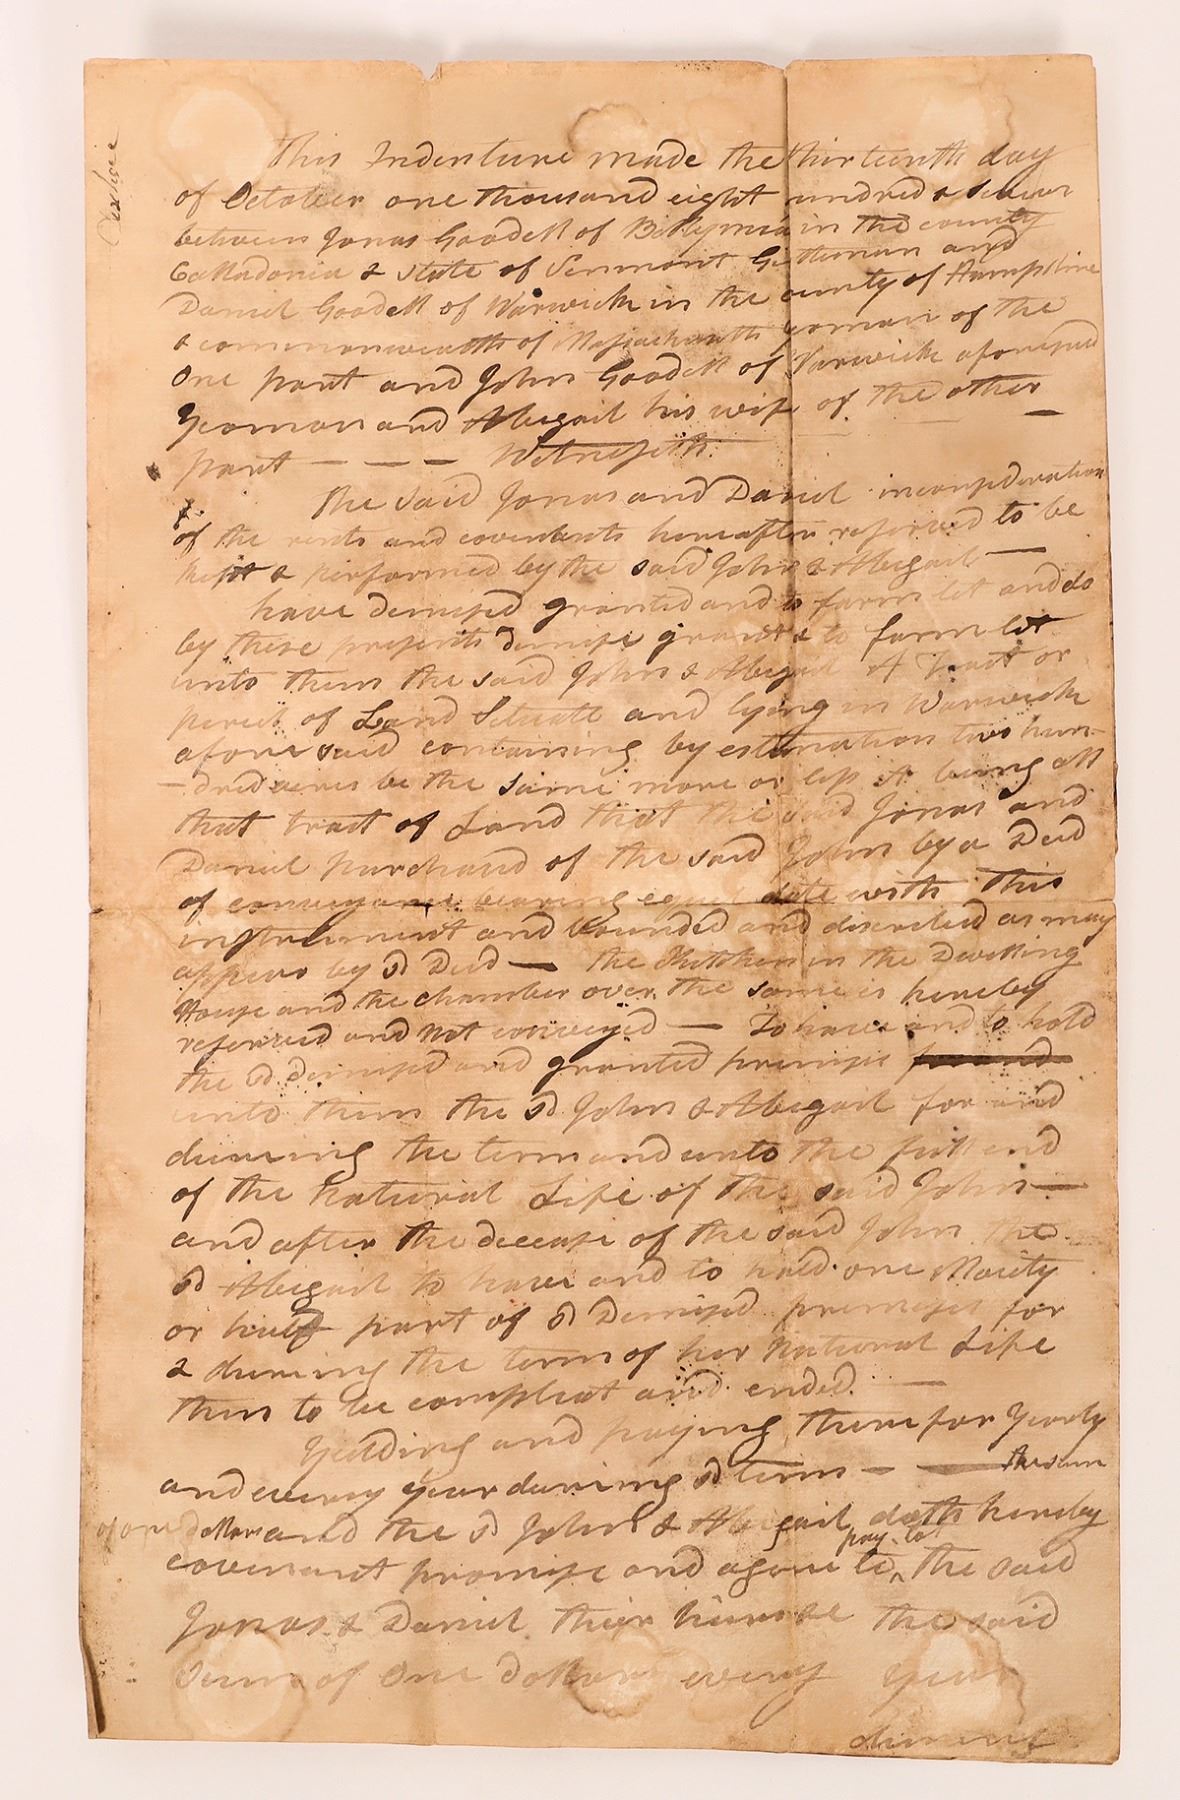 This Indenture made the thirteenth day
of October one thousand eight hundred & seven
between Jonas Goodell of in the county
Calladonia & state of Vermont Gentleman and
Daniel Goodell of Warwick in the county of Hampshire
& commonwealth of Massachusetts yoman of the
One part and John Goodell of Warwick aforesaid
Yeoman and Abigail his wife of the other —
part — — — Witnesseth.
The said Jonas and Daniel in consideration
of the rents and covenants hereafter reserved to be
kept & performed by the said John & Abigail —
have demised granted and to farm let and do
by these presents demise grant & to farm let
unto them the said John & Abigail A Tract or
percel of Land Situate and lying in Warwick
aforesaid containing by estimation two hun-
-dred acres be the same more or less it being all
that tract of Land that the said Jonas and
Daniel purchased of the said John by a Deed
of conveyance bearing equal date with this
instrument and bounded and discribed as may
appear by sd Deed — the Kitchen in the Dwelling
House and the chamber over the same is hereby
reserved and not conveyed — To have and to hold
the sd demised and granted premises
unto them the sd John & Abigail for and
dureing the term and unto the full end
of the natural Life of the said John —
and after the decease of the said John the
sd Abigail to have and to hold one Moiety
or half part of sd Demised premises for
& dureing the term of her natural Life
then to be compleat and ended. —
Yealding and paying therefor Yearly
and every year dureing sd term — — the sum
of one dollar and the sd John & Abigail doth hereby
pay to
covenant promise and agree to ^ the said
Jonas & Daniel their hiers &c the said
Sum of One dollar every year
dureing